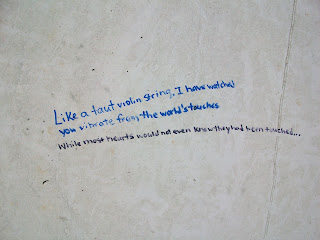 Like a taut violin string, I have watched
you vibrate from the world's touches
While most hearts would not even know they had been touched...